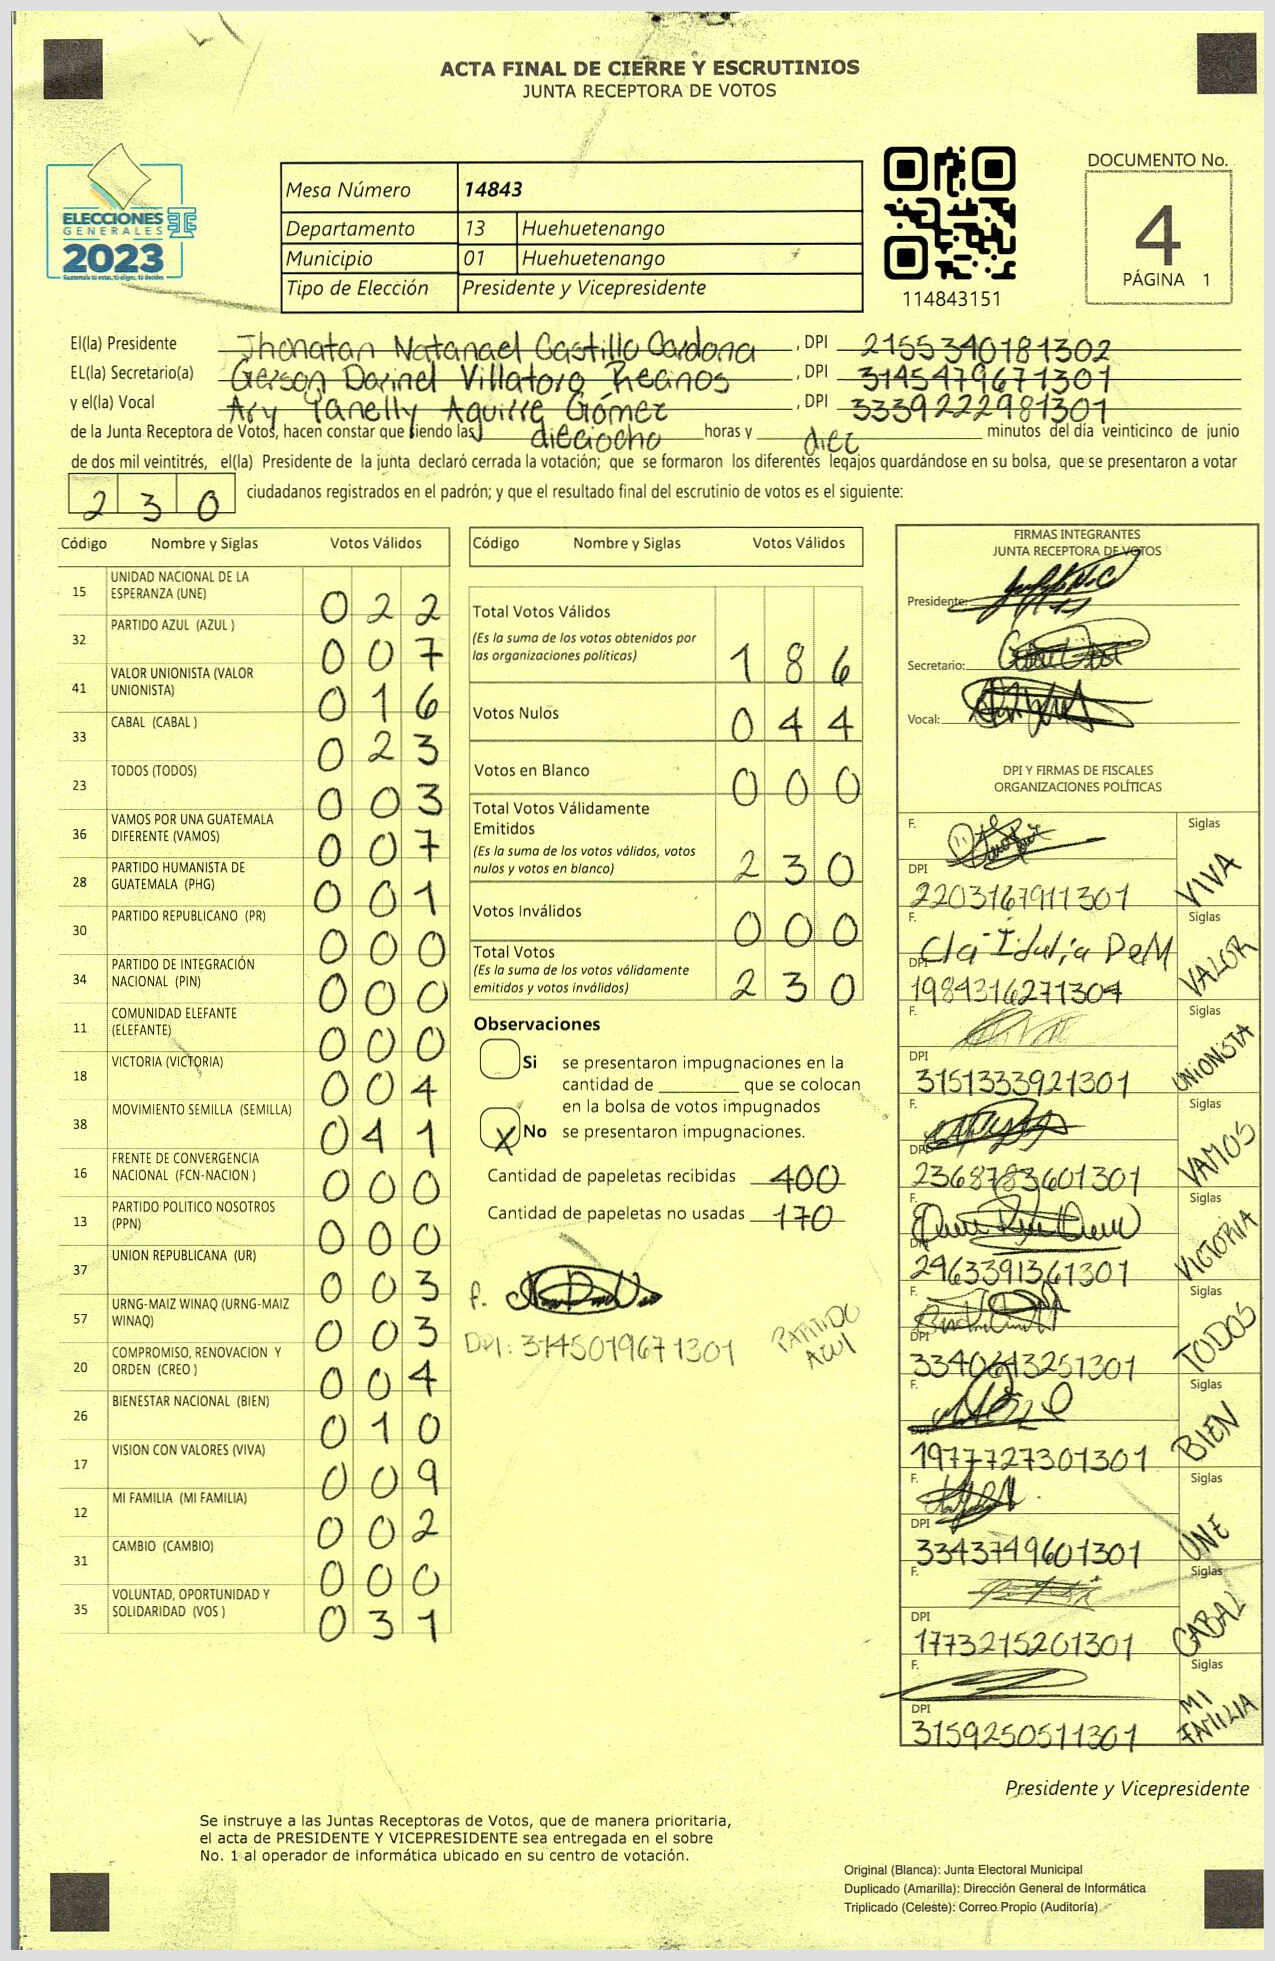 ACTA FINAL DE CIERRE Y ESCRUTINIOS
JUNTA RECEPTORA DE VOTOS
ELECCIONES
GENERALES
2023
Mesa Número 14843
Departamento 13 Huehuetenango
Municipio 01 Huehuetenango
Tipo de Elección Presidente y Vicepresidente
114843151
DOCUMENTO No.
4
PÁGINA 1
El(la) Presidente Jhonatan Natanael Castillo Cardona, DPI 2155340181302
EL(la) Secretario(a) Gerson Darinel Villatoro Recinos, DPI 3145479671301
y el(la) Vocal Ary Yanelly Aguirre Gómez, DPI 3339222981301
de la Junta Receptora de Votos, hacen constar que siendo las dieciocho horas y diez minutos del día veinticinco de junio
de dos mil veintitrés, el(la) Presidente de la junta declaró cerrada la votación; que se formaron los diferentes legajos quardándose en su bolsa, que se presentaron a votar
230 ciudadanos registrados en el padrón; y que el resultado final del escrutinio de votos es el siguiente:
Código Nombre y Siglas Votos Válidos
15 UNIDAD NACIONAL DE LA ESPERANZA (UNE) 022
32 PARTIDO AZUL (AZUL ) 007
41 VALOR UNIONISTA (VALOR UNIONISTA) 016
33 CABAL (CABAL ) 023
23 TODOS (TODOS) 003
36 VAMOS POR UNA GUATEMALA DIFERENTE (VAMOS) 007
28 PARTIDO HUMANISTA DE GUATEMALA (PHG) 001
30 PARTIDO REPUBLICANO (PR) 000
34 PARTIDO DE INTEGRACIÓN NACIONAL (PIN) 000
11 COMUNIDAD ELEFANTE (ELEFANTE) 000
18 VICTORIA (VICTORIA) 004
38 MOVIMIENTO SEMILLA (SEMILLA) 041
16 FRENTE DE CONVERGENCIA NACIONAL (FCN-NACION ) 000
13 PARTIDO POLITICO NOSOTROS (PPN) 000
37 UNION REPUBLICANA (UR) 003
57 URNG-MAIZ WINAQ (URNG-MAIZ WINAQ) 003
20 COMPROMISO, RENOVACION Y ORDEN (CREO ) 004
26 BIENESTAR NACIONAL (BIEN) 010
17 VISION CON VALORES (VIVA) 009
12 MI FAMILIA (MI FAMILIA) 002
31 CAMBIO (CAMBIO) 000
35 VOLUNTAD, OPORTUNIDAD Y SOLIDARIDAD (VOS ) 031
Código Nombre y Siglas Votos Válidos
Total Votos Válidos
(Es la suma de los votos obtenidos por
las organizaciones políticas) 186
Votos Nulos 044
Votos en Blanco 000
Total Votos Válidamente
Emitidos
(Es la suma de los votos válidos, votos
nulos y votos en blanco) 230
Votos Inválidos 000
Total Votos
(Es la suma de los votos válidamente
emitidos y votos inválidos) 230
Observaciones
Si se presentaron impugnaciones en la
cantidad de ________ que se colocan
en la bolsa de votos impugnados
X No se presentaron impugnaciones.
Cantidad de papeletas recibidas 400
Cantidad de papeletas no usadas 170
f.
DPI: 3145019671301 PARTIDO
AZUL
FIRMAS INTEGRANTES
JUNTA RECEPTORA DE VOTOS
Presidente:
Secretario:
Vocal:
DPI Y FIRMAS DE FISCALES
ORGANIZACIONES POLÍTICAS
F. Siglas
DPI 2203167911301 VIVA
F. Siglas
DPI 1984316271304 VALOR
F. Siglas
DPI 3151333921301 UNIONISTA
F. Siglas
DPI 2368783601301 VAMOS
F. Siglas
DPI 2963391361301 VICTORIA
F. Siglas
DPI 3340613251301 TODOS
F. Siglas
DPI 1977727301301 BIEN
F. Siglas
DPI 3343749601301 UNE
F. Siglas
DPI 1773215201301 CABAL
F. Siglas
DPI 3159250511301 MI FAMILIA
Presidente y Vicepresidente
Se instruye a las Juntas Receptoras de Votos, que de manera prioritaria,
el acta de PRESIDENTE Y VICEPRESIDENTE sea entregada en el sobre
No. 1 al operador de informática ubicado en su centro de votación.
Original (Blanca): Junta Electoral Municipal
Duplicado (Amarilla): Dirección General de Informática
Triplicado (Celeste): Correo Propio (Auditoría)